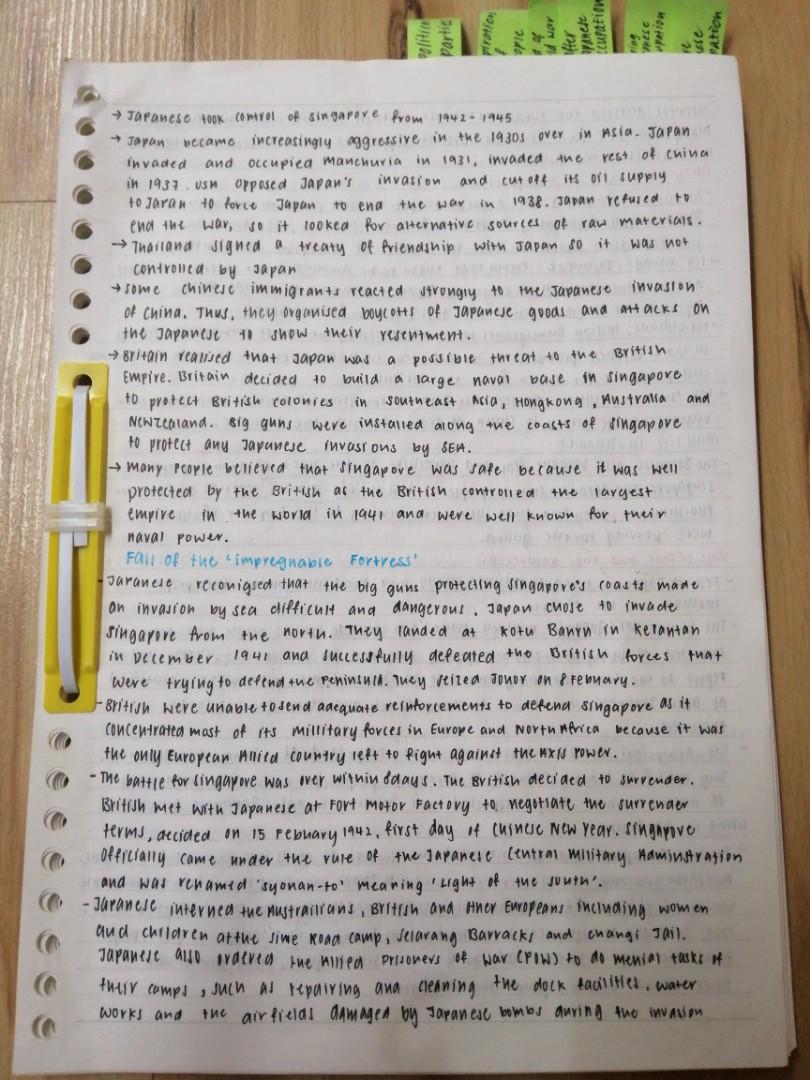 politic
partie
piration
f
ople
a of
ld war
after
apanese
ccupation
ring
nese
upation
e
ese
pation
→ Japanese took control of singapore from 1942 - 1945
→ Japan became increasingly aggressive in the 1930s over in Asia. Japan
invaded and occupied Manchuria in 1931, invaded the rest of China
in 1937. USA opposed Japan's invasion and cut off its oil supply
to Japan to force Japan to end the war in 1938. Japan refused to
end the war, so it looked for alternative sources of raw materials.
→ Thailand signed a treaty of friendship with Japan so it was not
controlled by Japan
→ some chinese immigrants reacted strongly to the Japanese invasion
of China. Thus, they organised boycotts of Japanese goods and attacks on
the Japanese to show their resentment.
→ Britain realised that Japan was a possible threat to the British
Empire. Britain decided to build a large naval base in singapore
to protect British colonies in southeast Asia, Hongkong, Australia and
NewZealand. Big guns were installed along the coasts of Singapore
to protect any Japanese invasions by SEA.
→ Many People believed that Singapore was safe because it was well
protected by the British as the British controlled the largest
empire in the world in 1941 and were well known for their
naval power.
Fall of the 'impregnable Fortress'
- Japanese reconigsed that the big guns protecting Singapore's coasts made
an invasion by sea difficult and dangerous. Japan chose to invade
Singapore from the north. They landed at Kotu Bahru in Kelantan
in December 1941 and successfully defeated the British forces that
were trying to defend the Peninsula. They seized Johor on 8 Febuary.
- British were unable to send adequate reinforcements to defend Singapore as it
concentrated most of its millitary forces in Europe and North Africa because it was
the only European Allied country left to fight against the Axis Power.
- The battle for Singapore was over within 8days. The British decided to surrender.
British met with Japanese at Fort Motor Factory to negotiate the surrender
terms, decided on 15 Febuary 1942, first day of Chinese New Year. Singapore
Officially came under the rule of the Japanese Central Military Adminstration
and was renamed 'syonan-to' meaning 'Light of the south'.
- Japanese interned the Austrailians, British and other Europeans including women
and children at the Sime Road camp, Selarang Barracks and Changi Jail.
Japanese also ordered the Allied Prisoners of War (POW) to do menial tasks at
their camps, such as repairing and cleaning the dock facilities, water
works and the airfields damaged by Japanese bombs during the invasion